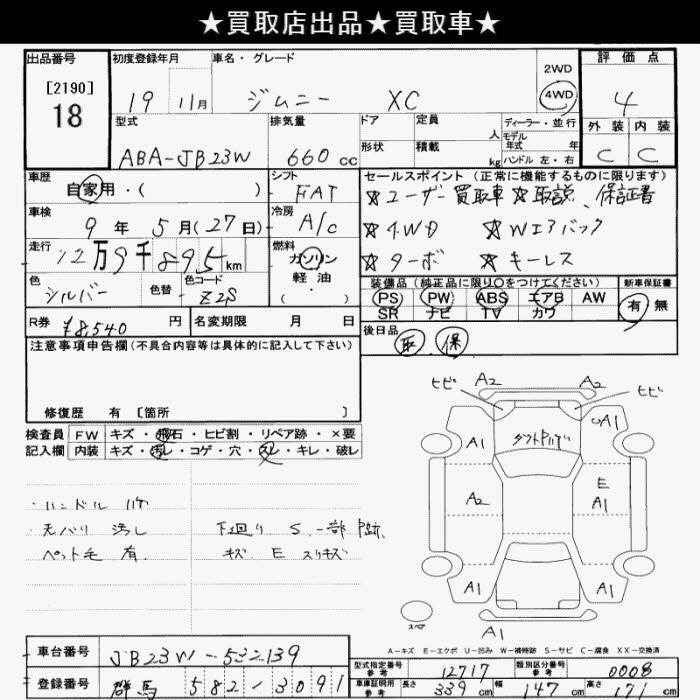 ★買取店出品★買取車★
出品番号 初度登録年月 車名・グレード 評価点
[2190]
18
19 11月 ジムニー XC 2WD 4WD 4
型式 排気量 ドア 定員 人 ディーラー・並行 外装 内装
モデル年式 年
ABA-JB23W 660cc 形状 積載 kg ハンドル 左・右 C C
車歴 シフト セールスポイント (正常に機能するものに限ります)
自家用・( ) FAT ☆ユーザー買取車 ☆取説、保証書
車検 冷房
9年 5月(27日) A/c ☆4WD ☆Wエアバック
走行 燃料
12万9千895km ガソリン ☆ターボ ☆キーレス
軽油
・( )
色 色替 色コード 装備品 (純正品に限り○をつけてください) 新車保証書
シルバー Z2S PS PW ABS エアB AW 有 無
SR ナビ TV カワ
R券 ¥8,540 円 名変期限 月 日 後日品
取 保
注意事項申告欄 (不具合内容等は具体的に記入して下さい)
修復歴 有 [箇所 ]
検査員 FW キズ・飛石・ヒビ割・リペア跡・×要
記入欄 内装 キズ・汚レ・コゲ・穴・スレ・キレ・破レ
・ハンドル ハゲ
天バリ 汚し 下廻り S、一部P跡
ペット毛 有 キズ E スリキズ
ヒビ A2 A2 ヒビ
A1 A1
A2 E
A1
A1 A1
スペア
A1
A-キズ E-エクボ U-凹み W-補修跡 S-サビ C-腐食 XX-交換済
車台番号 JB23W-532139
型式指定番号 参考 12717 類別区分番号 参考 0008
登録番号 群馬 582 3091
車庫証明用 参考 長さ 339cm 幅 147cm 高さ 71cm